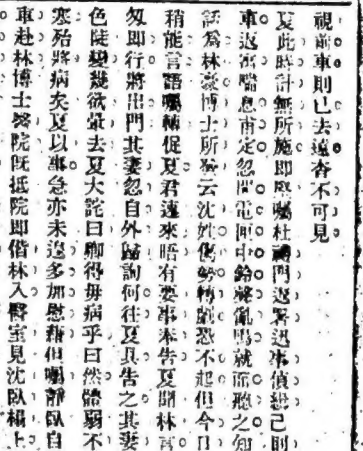 視前車則已去遠杳不可見
夏此時計無所施即囑杜 門返署迅事偵緝己則
車返寓喘息甫定忽聞電話中鈴聲亂鳴就而聽之知
話爲林豪博士所發云沈姓傷勢轉劇恐不起但今日
稍能言語囑轉促夏君速來晤有要事奉告夏聞林言
匆即行將出門其妻忽自外歸詢何往夏具告之其妻
色陡變幾欲暈去夏大詫曰卿得毋病乎曰然體弱不
寒殆將病矣夏以事急亦未遑多加慰藉但囑靜臥自
車赴林博士醫院旣抵院即偕林入醫室見沈臥榻上